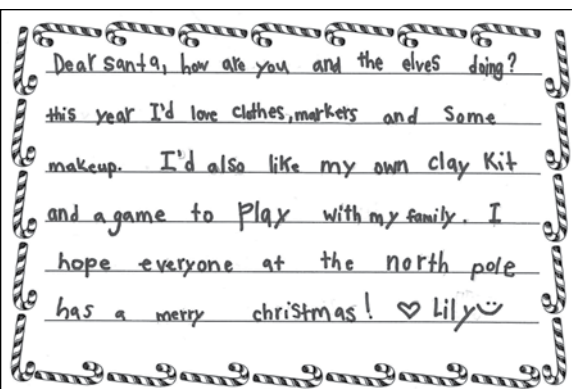 Dear santa, how are you and the elves doing?
this year I'd love clothes, markers and Some
makeup. I'd also like my own clay Kit
and a game to Play with my family. I
hope everyone at the north pole
has a merry christmas! ♡ Lily